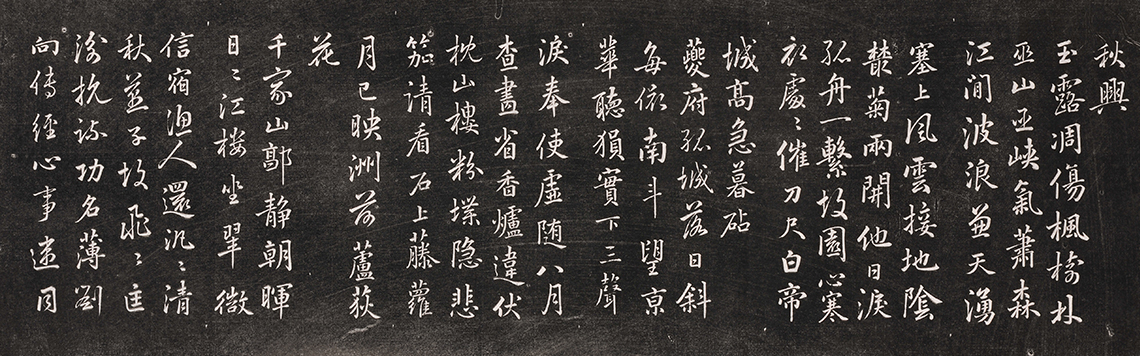 秋興
玉露凋傷楓樹林
巫山巫峽氣蕭森
江間波浪兼天湧
塞上風雲接地陰
叢菊兩開他日淚
孤舟一繫故園心寒
衣處〻催刀尺白帝
城高急暮砧
夔府孤城落日斜
每依南斗望京
華聽猿實下三聲
淚奉使虛随八月
查畫省香爐違伏
枕山樓粉堞隐悲
笳請看石上藤蘿
月已映洲前蘆荻
花
千家山郭静朝暉
日〻江楼坐翠微
信宿漁人還汎〻清
秋燕子故飛〻匡
衡抗疏功名薄劉
向傳經心事違同